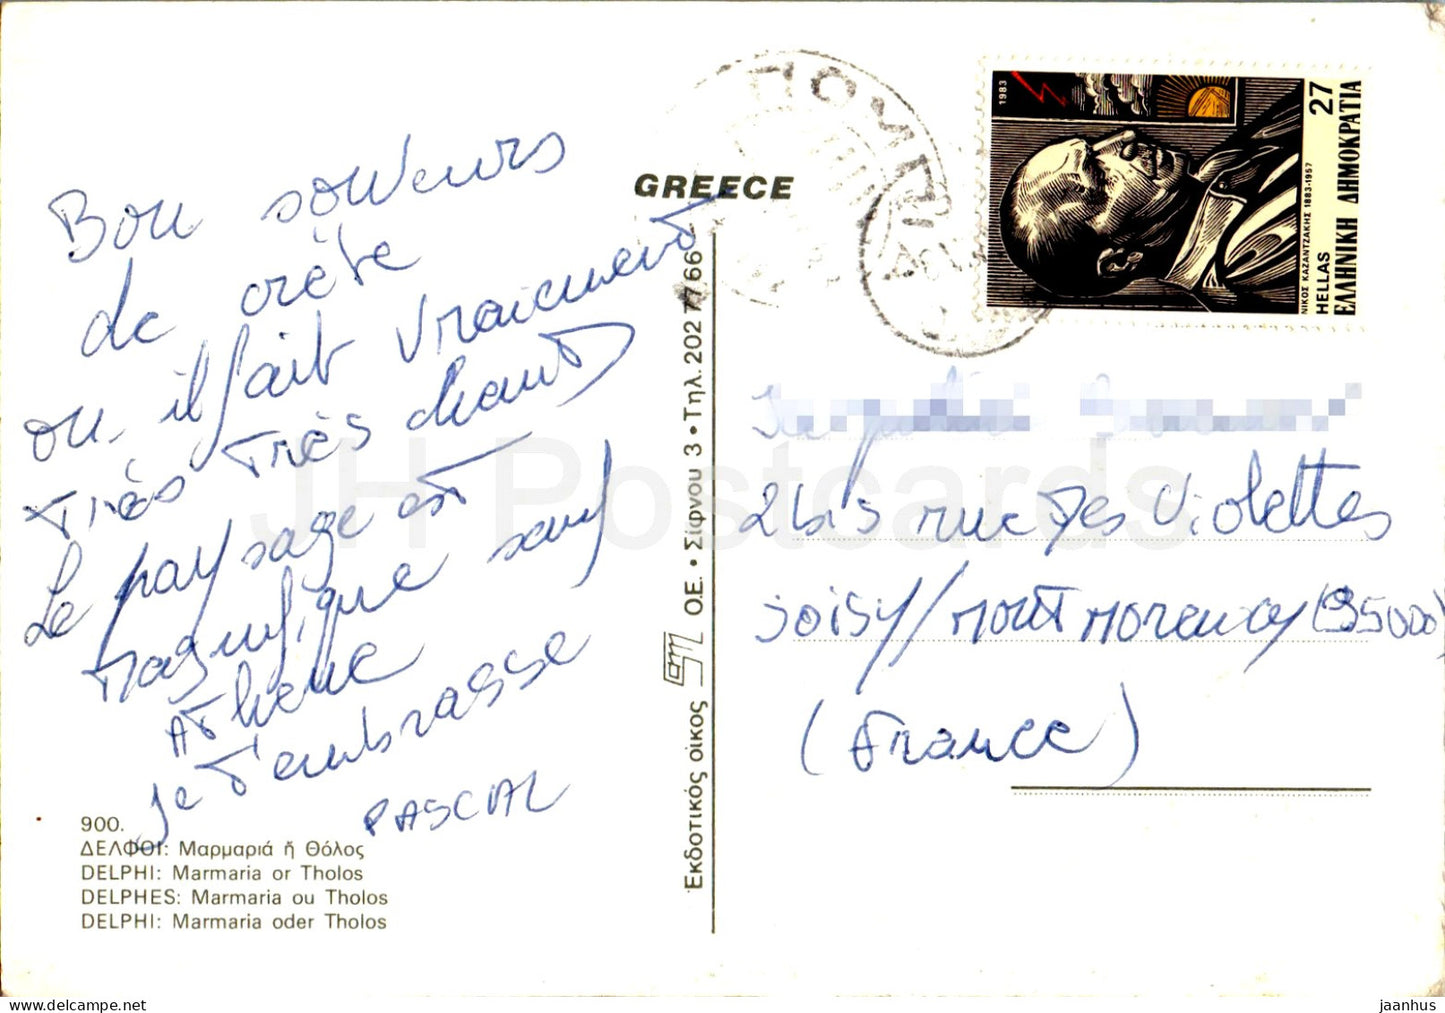 GREECE
Bon souveurs
de crète
ou il fait vraiment
très très chaud
Le paysage est
magnifique sauf
Athene
je t'embrasse
PASCAL
900.
ΔΕΛΦΟΙ: Μαρμαριά ἤ Θόλος
DELPHI: Marmaria or Tholos
DELPHES: Marmaria ou Tholos
DELPHI: Marmaria oder Tholos
Ἐκδοτικός οἶκος O.E. • Σίφνου 3 • Τηλ. 202 77 66
ΠΟΜΠ
1983
ΝΙΚΟΣ ΚΑΖΑΝΤΖΑΚΗΣ 1883-1957
HELLAS 27
ΕΛΛΗΝΙΚΗ ΔΗΜΟΚΡΑΤΙΑ
2 bis rue des Violettes
joisy/MONTMORENCY (95000)
(France)
JH Postcards
jaanhus